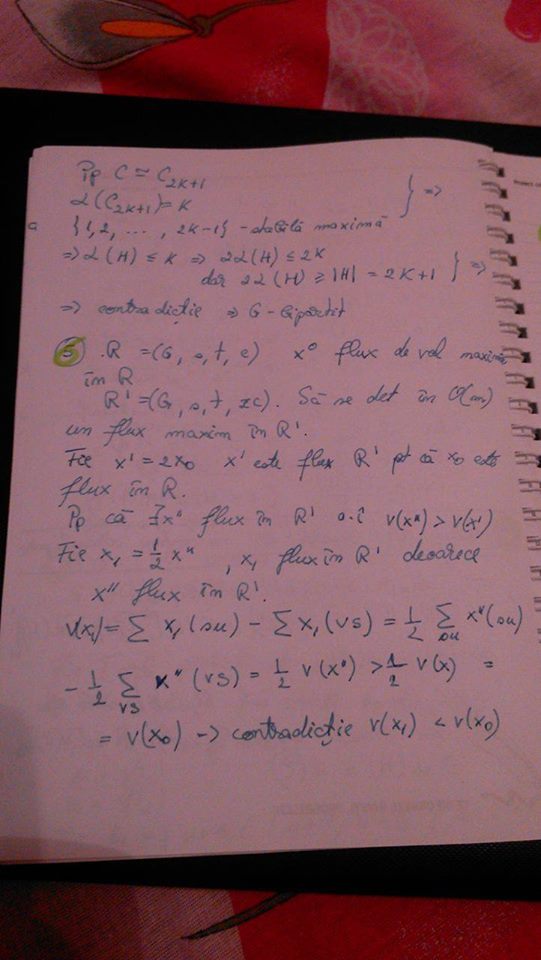 Pp C ≃ C_{2K+1}
α(C_{2K+1}) = K } =>
{1, 2, ..., 2K-1} - stabilă maximă
=> α(H) ≤ K => 2α(H) ≤ 2K
dar 2α(H) ≥ |H| = 2K+1 } =>
=> contradicție => G - bipartit
5 R = (G, s, t, c) x⁰ flux de val maximă
în R
R' = (G, s, t, 2c). Să se det în O(m)
un flux maxim în R'.
Fie x' = 2x₀ x' este flux R' pt că x₀ este
flux în R.
Pp că ∃x" flux în R' a.î v(x") > v(x')
Fie x₁ = 1/2 x", x₁ flux în R' deoarece
x" flux în R'.
v(x₁) = Σ x₁(su) - Σ x₁(vs) = 1/2 Σ_{su} x"(su)
- 1/2 Σ_{vs} x"(vs) = 1/2 v(x") > 1/2 v(x) =
= v(x₀) -> contradicție v(x₁) < v(x₀)